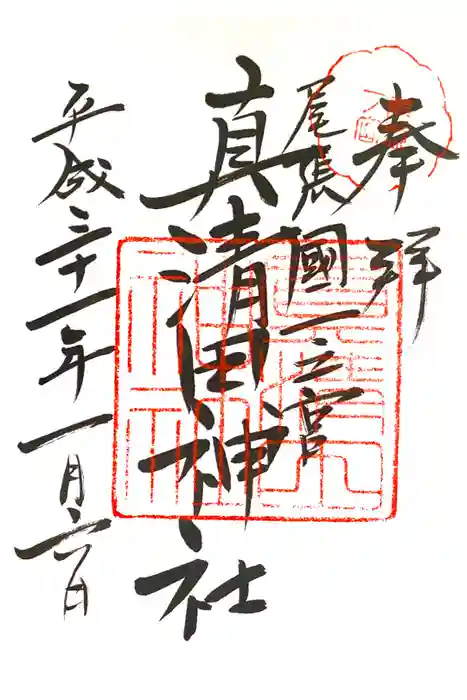 奉拝
尾張國一之宮
真清田神社
平成三十一年一月六日